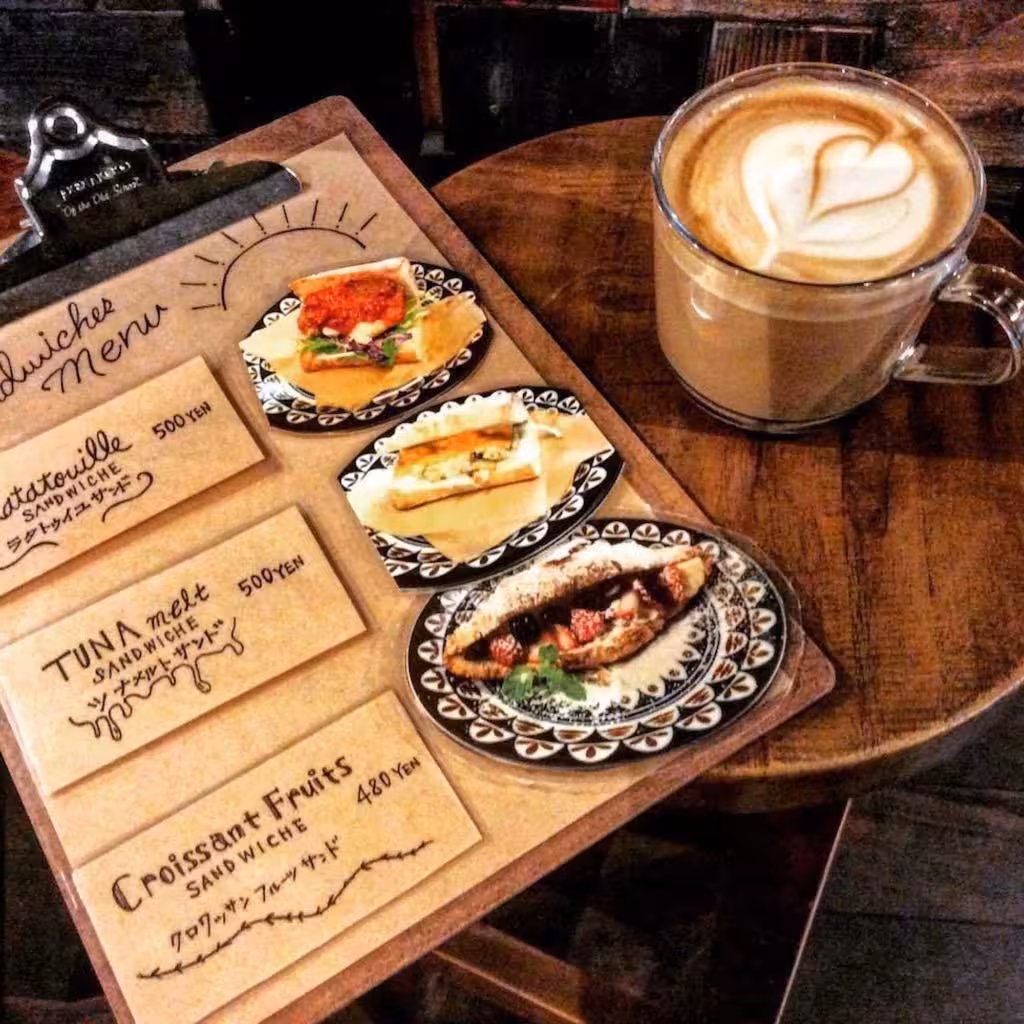 Of the Old School
Menu
500 YEN
SANDWICHE
ラタトゥイユサンド
TUNA melt
500 YEN
SANDWICHE
ツナメルトサンド
Croissant Fruits
480 YEN
SANDWICHE
クロワッサンフルーツサンド